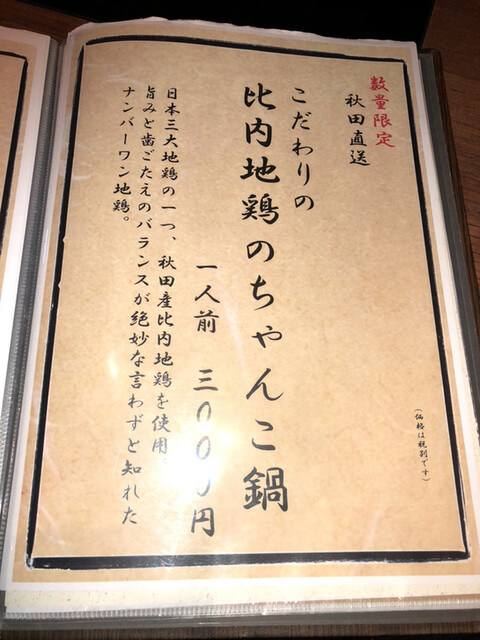 数量限定
秋田直送
(価格は税別です)
こだわりの
比内地鶏のちゃんこ鍋
一人前 三〇〇〇円
日本三大地鶏の一つ、秋田産比内地鶏を使用。
旨みと歯ごたえのバランスが絶妙な言わずと知れた
ナンバーワン地鶏。